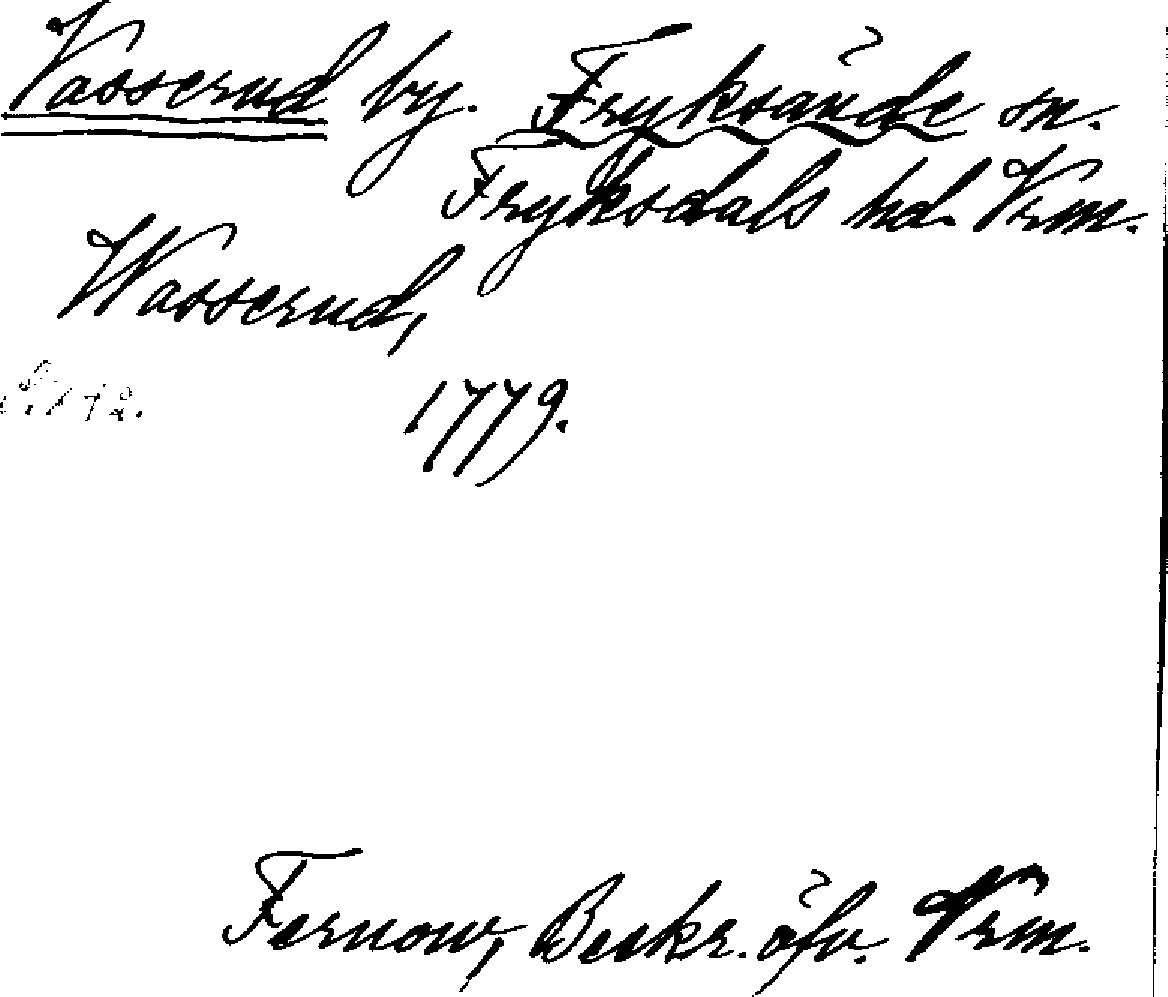 Vasserud by. Fryksände sn.
Fryksdals hd. Vrm.
Wasserud,
1779.
Fernow, Beskr. öfv. Vrm.